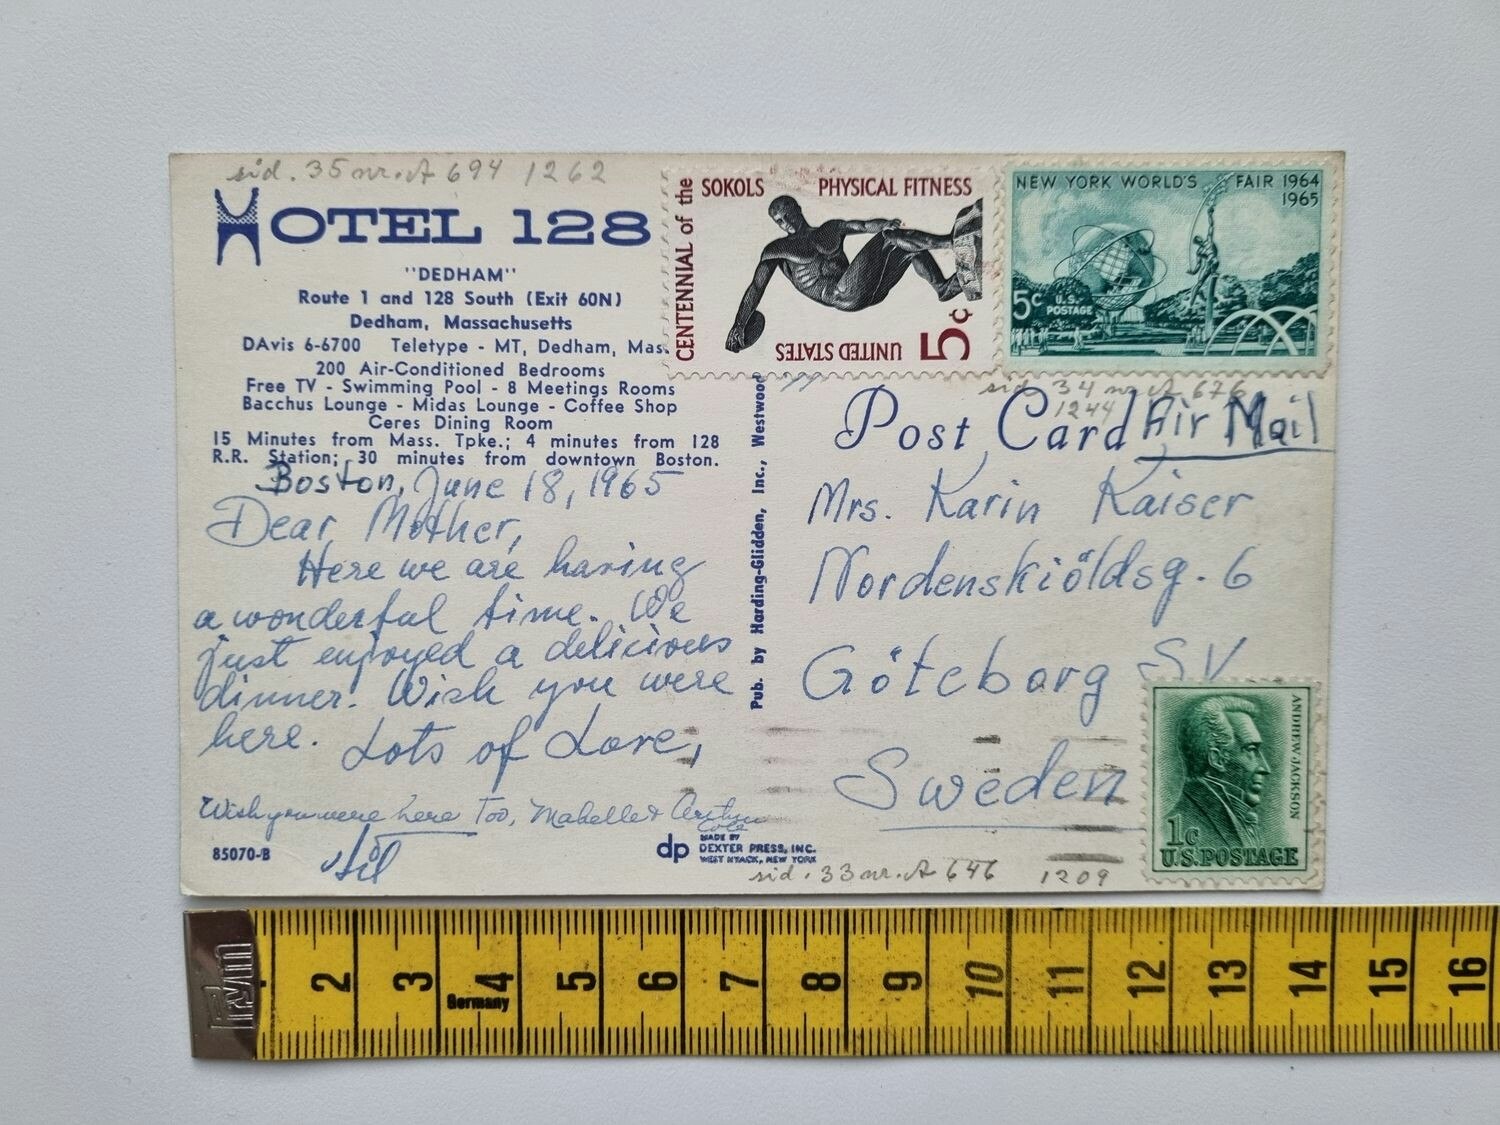 sid. 35 nr. A 694 1262
HOTEL 128
"DEDHAM"
Route 1 and 128 South (Exit 60N)
Dedham, Massachusetts
DAvis 6-6700 Teletype - MT, Dedham, Mas.
200 Air-Conditioned Bedrooms
Free TV - Swimming Pool - 8 Meetings Rooms
Bacchus Lounge - Midas Lounge - Coffee Shop
Ceres Dining Room
15 Minutes from Mass. Tpke.; 4 minutes from 128
R.R. Station; 30 minutes from downtown Boston.
Boston, June 18, 1965
Dear Mother,
Here we are having
a wonderful time. We
just enjoyed a delicious
dinner. Wish you were
here. Lots of Love,
Wish you were here Too, Mabelle & Arthur
Cole
85070-B
dp
MADE BY
DEXTER PRESS, INC.
WEST NYACK, NEW YORK
Pub. by Harding-Glidden, Inc., Westwood
CENTENNIAL of the
SOKOLS PHYSICAL FITNESS
UNITED STATES
5c
NEW YORK WORLD'S FAIR 1964
1965
5c U.S.
POSTAGE
sid. 34 nr. A 676
1244
Post Card
Air Mail
Mrs. Karin Kaiser
Nordenskiöldsg. 6
Göteborg SV
Sweden
ANDREW JACKSON
1c
U.S. POSTAGE
sid. 33 nr. A 646 1209
Prym
2 3 4 5 6 7 8 9 10 11 12 13 14 15 16
Germany